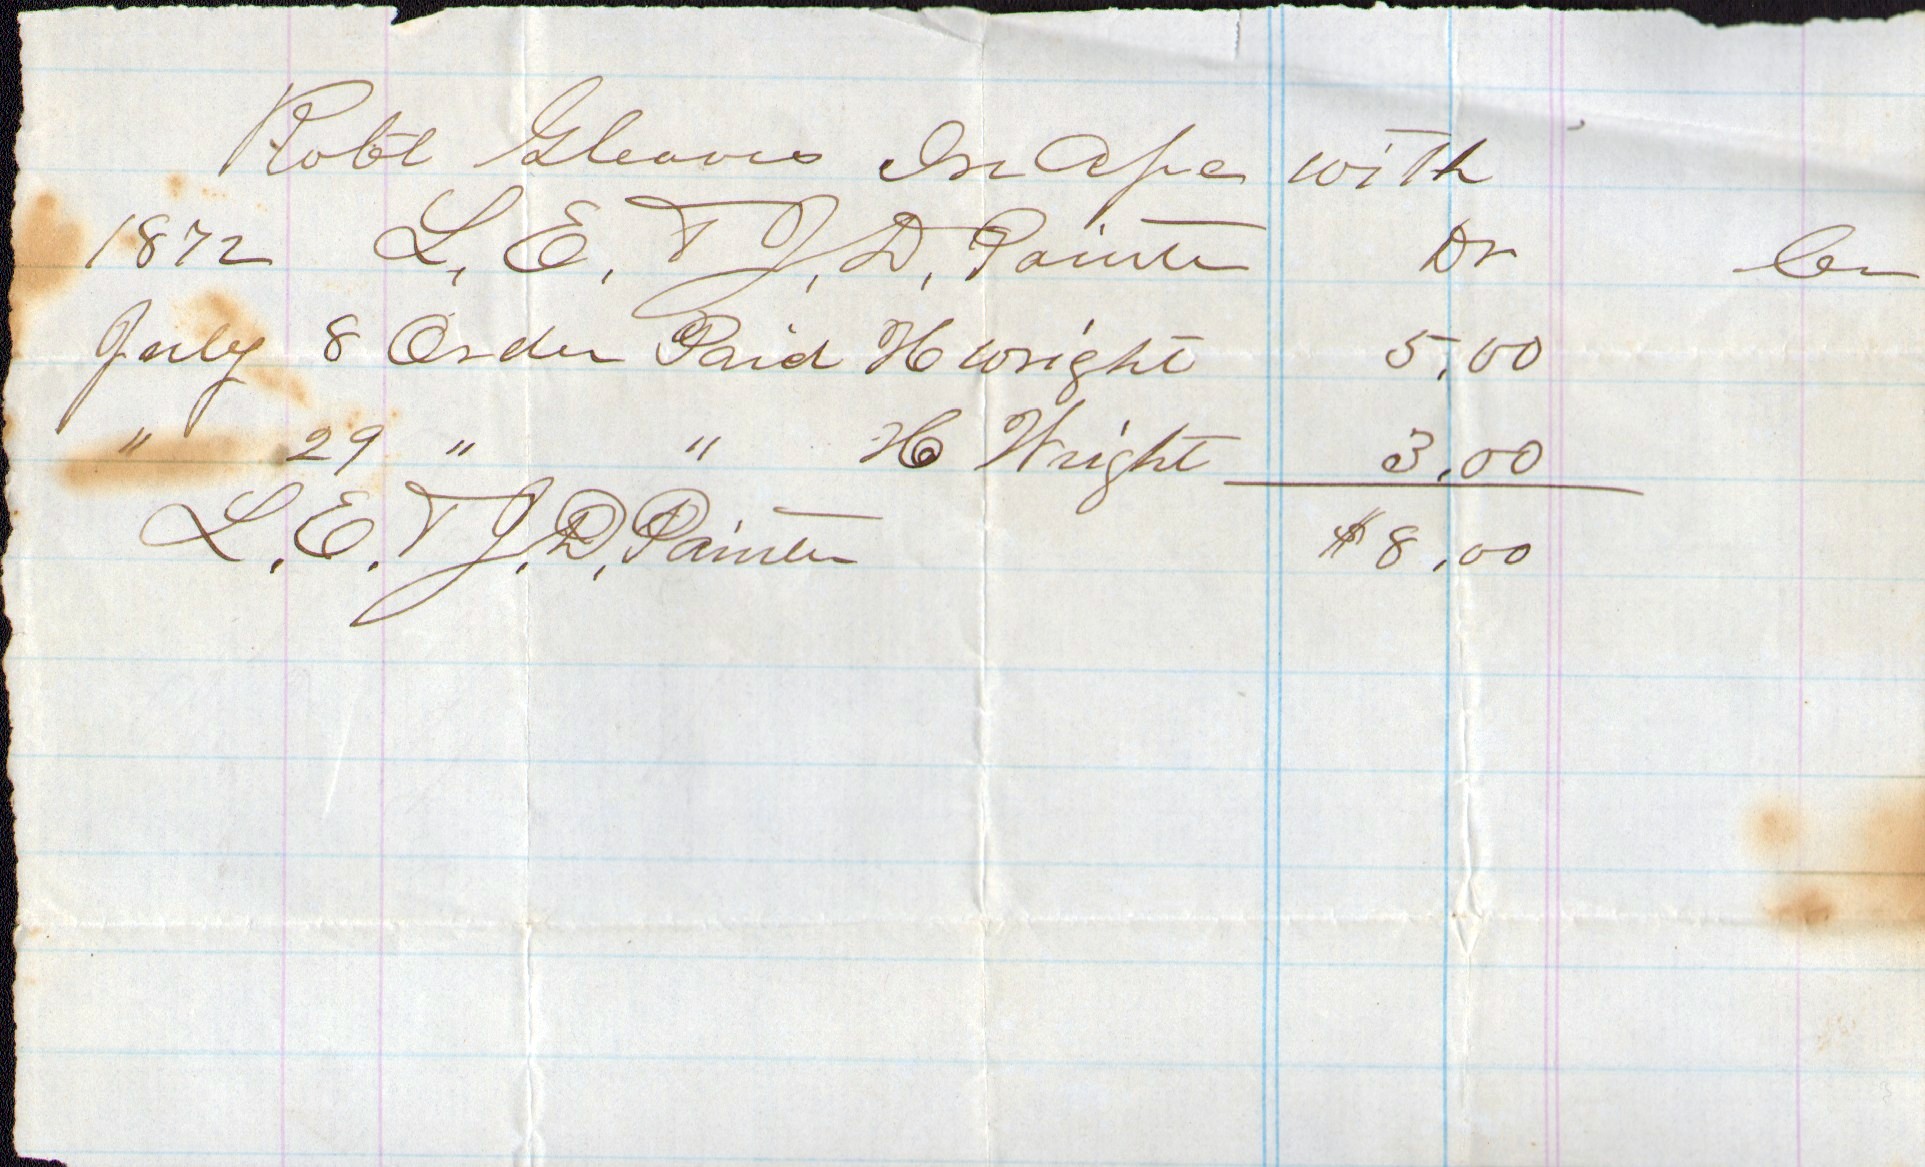 Robt Gleaves In a/c with
1872 L. E. T J. D. Painter Dr Cr
July 8 Order Paid H Wright 5.00
" 29 " " H Wright 3.00
L. E. T J. D. Painter $8.00